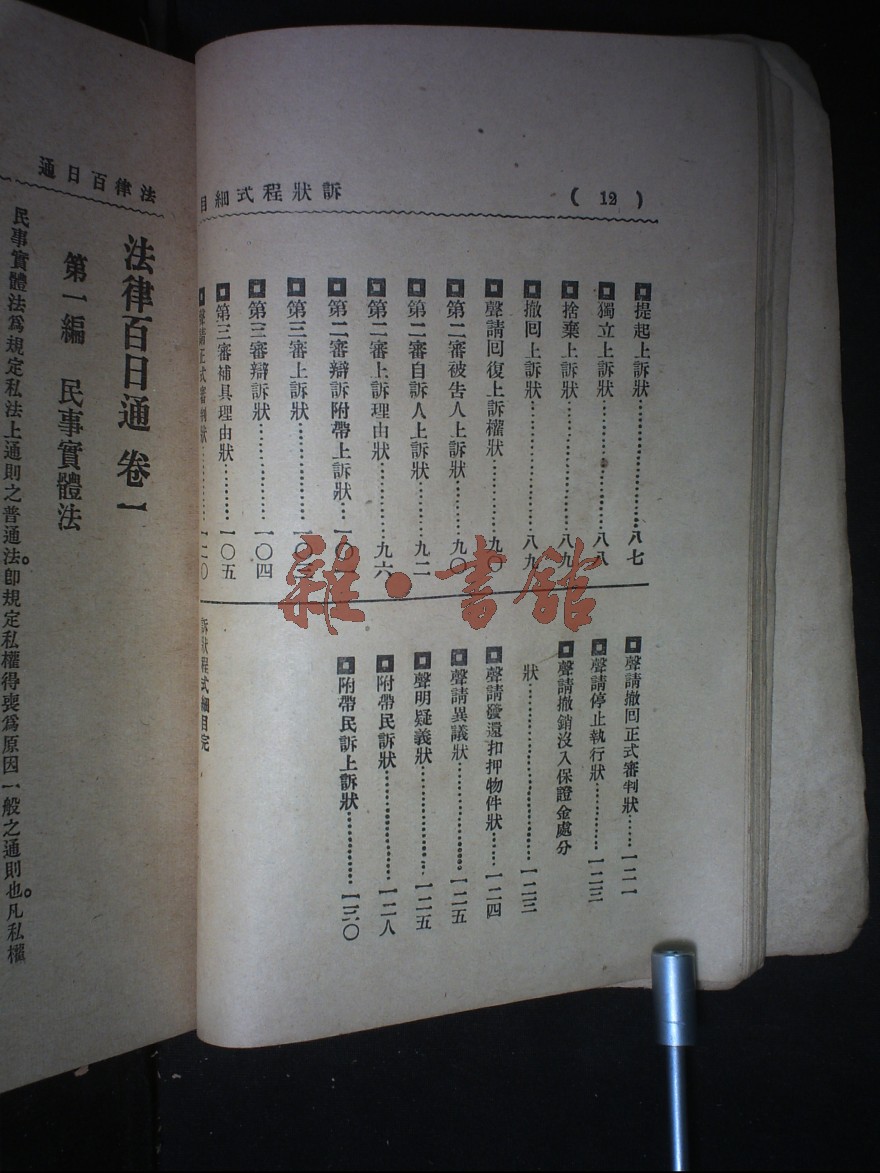 (12)
訴狀程式細目
提起上訴狀…………八七
獨立上訴狀…………八八
捨棄上訴狀…………八九
撤回上訴狀…………八九
聲請回復上訴權狀…………九〇
第二審被告人上訴狀…………九〇
第二審自訴人上訴狀…………九二
第二審上訴理由狀…………九六
第二審辯訴附帶上訴狀…………一〇
第三審上訴狀…………一〇三
第三審辯訴狀…………一〇四
第三審補具理由狀…………一〇五
聲請正式審判狀…………一二〇
聲請撤回正式審判狀……一二一
聲請停止執行狀…………一二三
聲請撤銷沒入保證金處分
狀…………一二三
聲請發還扣押物件狀……一二四
聲請異議狀…………一二五
聲明疑義狀…………一二五
附帶民訴狀…………一二八
附帶民訴上訴狀…………一三〇
訴狀程式細目完
雜·書館
法律百日通
法律百日通 卷一
第一編 民事實體法
民事實體法爲規定私法上通則之普通法。卽規定私權得喪爲原因一般之通則也。凡私權